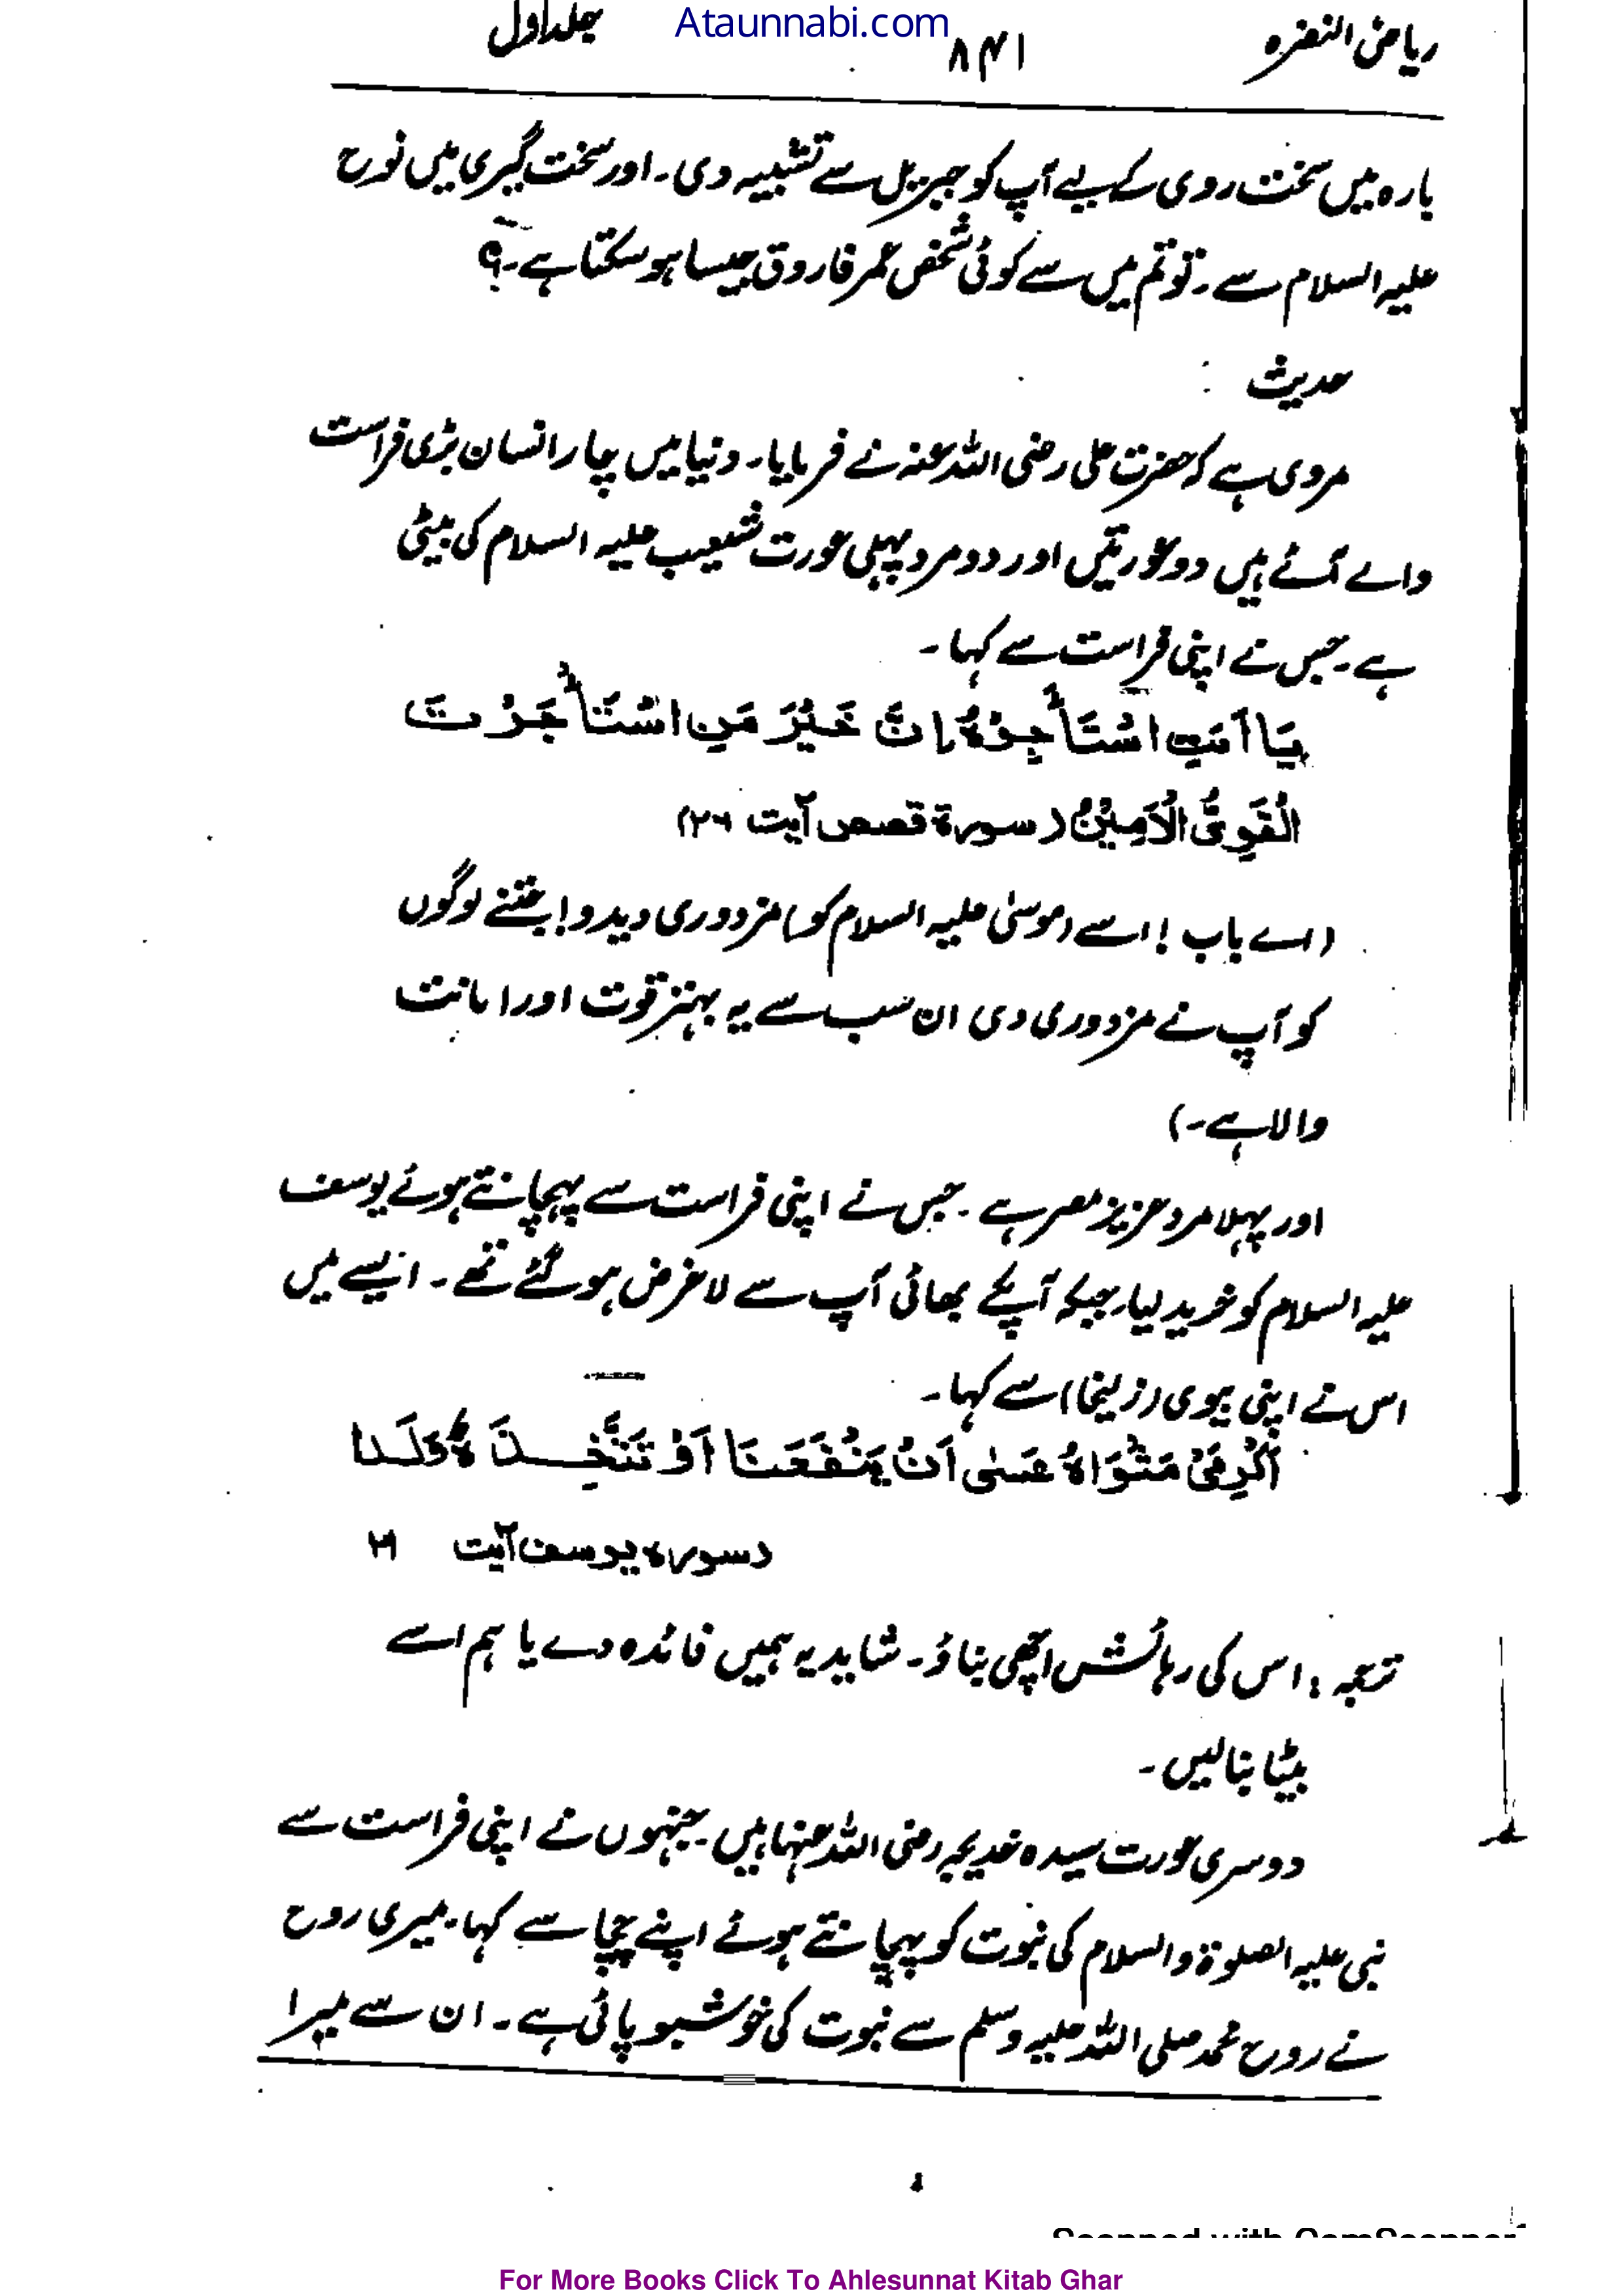 Ataunnabi.com
ریاض النضرہ ۸۴۱ جلد اول
بارہ میں سخت روی کے لیے آپ کو جبریل سے تشبیہ دی۔ اور سخت گیری میں نوح
علیہ السلام سے۔ تو تم میں سے کوئی شخص عمر فاروق جیسا ہو سکتا ہے۔؟
حدیث :
مروی ہے کہ حضرت علی رضی اللہ عنہ نے فرمایا۔ دنیا میں چار انسان بڑی فراست
والے آئے ہیں دو عورتیں اور دو مرد پہلی عورت شعیب علیہ السلام کی بیٹی
ہے۔ جس نے اپنی فراست سے کہا۔
يَا اَبَتِ اسْتَأْجِرْهُ اِنَّ خَيْرَ مَنِ اسْتَأْجَرْتَ
الْقَوِیُّ الْاَمِیْنُ (سورة قصص آیت ۲۶)
(اے باب ! اسے (موسیٰ علیہ السلام کو) مزدوری دیدو! جتنے لوگوں
کو آپ نے مزدوری دی ان سب سے یہ بہتر قوت اور امانت
والا ہے۔)
اور پہلا مرد عزیز مصر ہے۔ جس نے اپنی فراست سے پہچانتے ہوئے یوسف
علیہ السلام کو خرید لیا۔ جبکہ آپکے بھائی آپ سے لا غرض ہو گئے تھے۔ ایسے میں
اس نے اپنی بیوی (زلیخا) سے کہا۔
اَكْرِمِیْ مَثْوَاهُ عَسٰی اَنْ یَنْفَعَنَا اَوْ نَتَّخِذَهٗ وَلَدًا
(سورہ یوسف آیت ۲۱
ترجمہ: اس کی رہائش اچھی بناؤ۔ شاید یہ ہمیں فائدہ دے یا ہم اسے
بیٹا بنالیں۔
دوسری عورت سیدہ خدیجہ رضی اللہ عنہا ہیں۔ جنہوں نے اپنی فراست سے
نبی علیہ الصلوۃ والسلام کی نبوت کو پہچانتے ہوئے اپنے چچا سے کہا۔ میری روح
نے روح محمد صلی اللہ علیہ وسلم سے نبوت کی خوشبو پائی ہے۔ ان سے میرا
Scanned with CamScanner
For More Books Click To Ahlesunnat Kitab Ghar